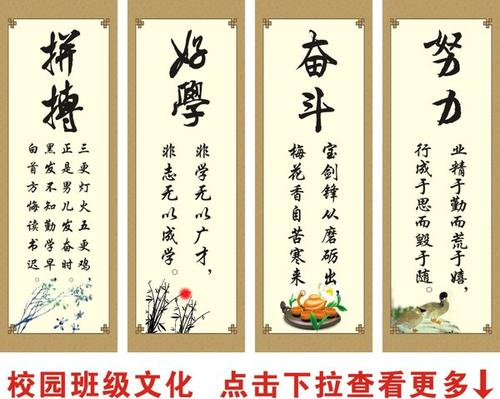 拼搏
三更灯火五更鸡，
正是男儿发奋时。
黑发不知勤学早，
白首方悔读书迟。
好學
非学无以广才，
非志无以成学。
奋斗
宝剑锋从磨砺出
梅花香自苦寒来
努力
业精于勤而荒于嬉，
行成于思而毁于随。
校园班级文化 点击下拉查看更多↓